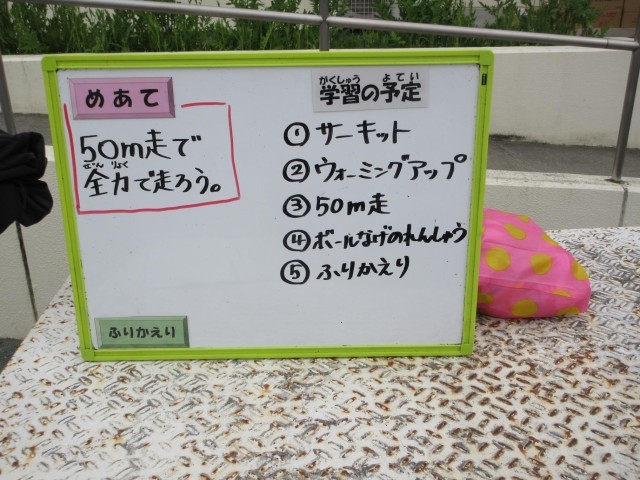 めあて
50m走で
ぜんりょく
全力で走ろう。
がくしゅう よてい
学習の予定
① サーキット
② ウォーミングアップ
③ 50m走
④ ボールなげのれんしゅう
⑤ ふりかえり
ふりかえり